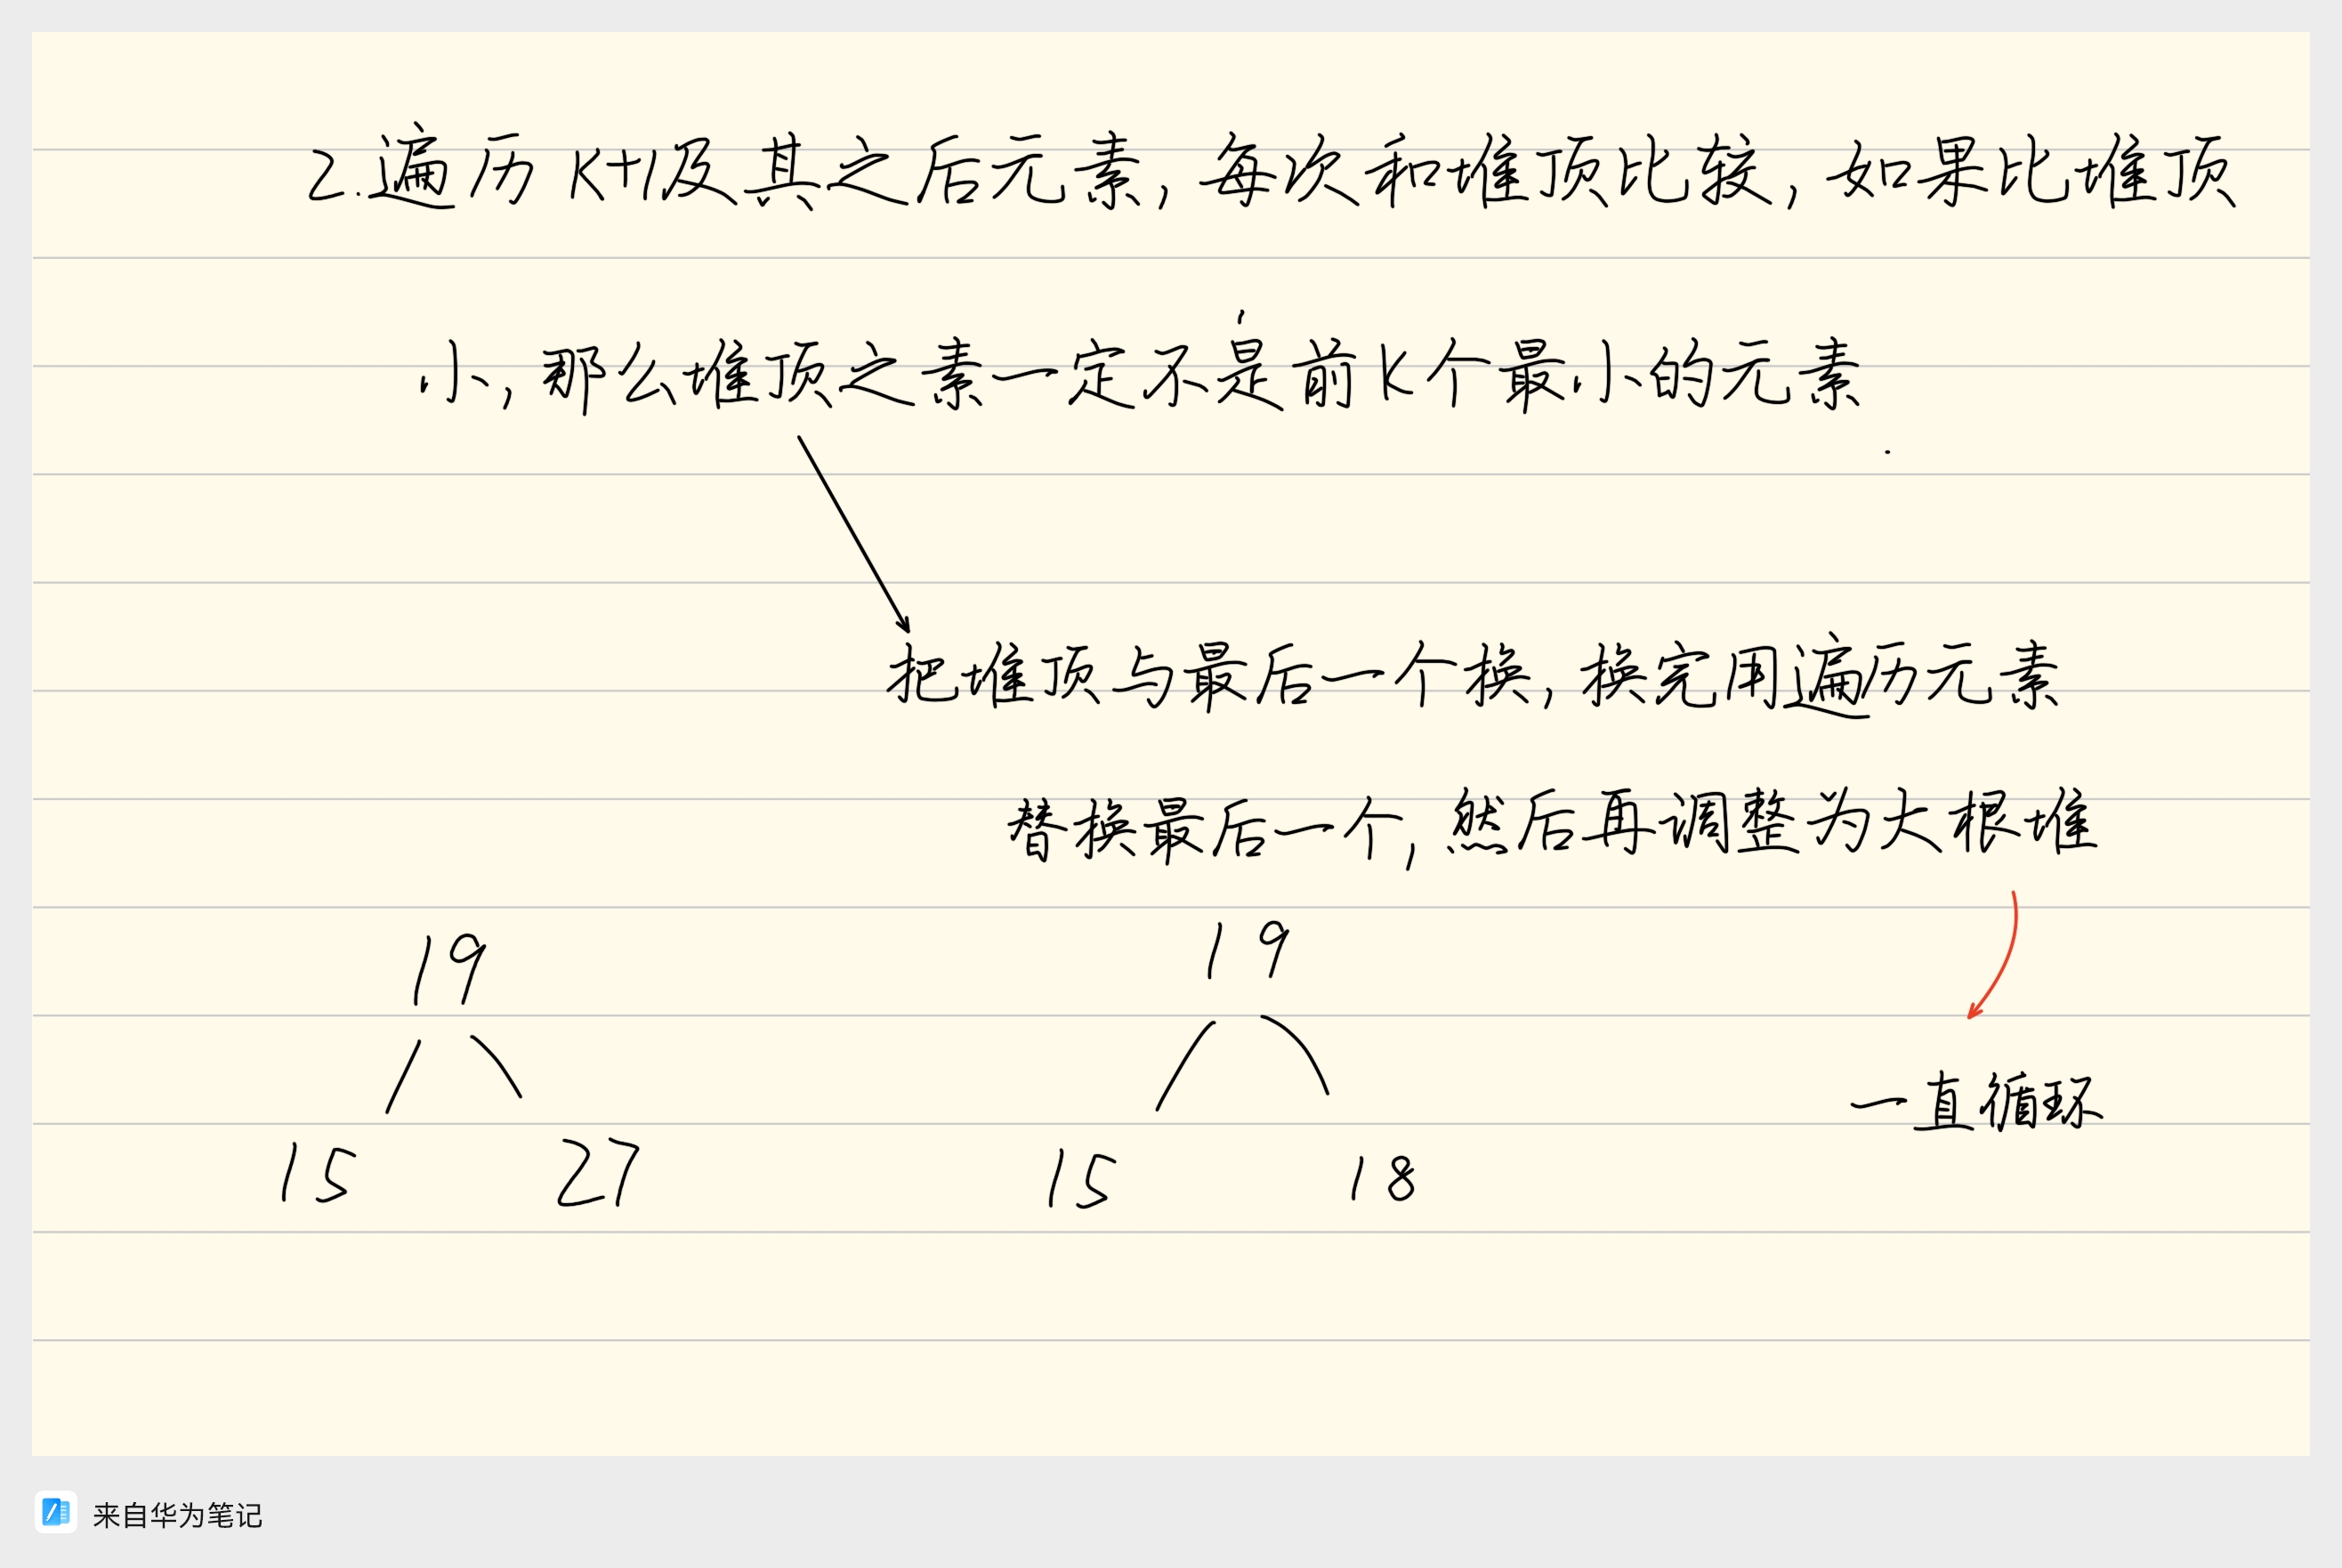 2.遍历K+1及其之后元素,每次和堆顶比较,如果比堆顶
小,那么堆顶之素一定不是前K个最小的元素.
把堆顶与最后一个换,换完用遍历元素
替换最后一个,然后再调整为大根堆
19
19
一直循环
15
27
15
18
来自华为笔记